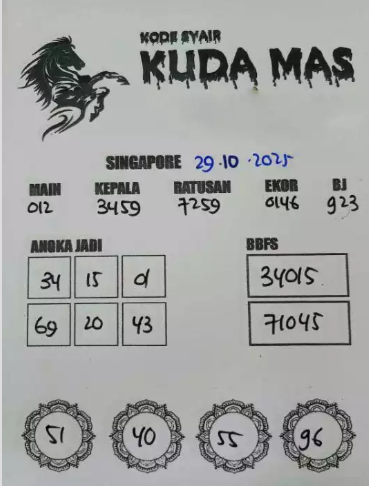 KODE SYAIR
KUDA MAS
SINGAPORE 29.10.2025
MAIN KEPALA RATUSAN EKOR BJ
012 3459 7259 0146 923
ANGKA JADI BBFS
34 15 01 34015
69 20 43 71045
51 40 55 96